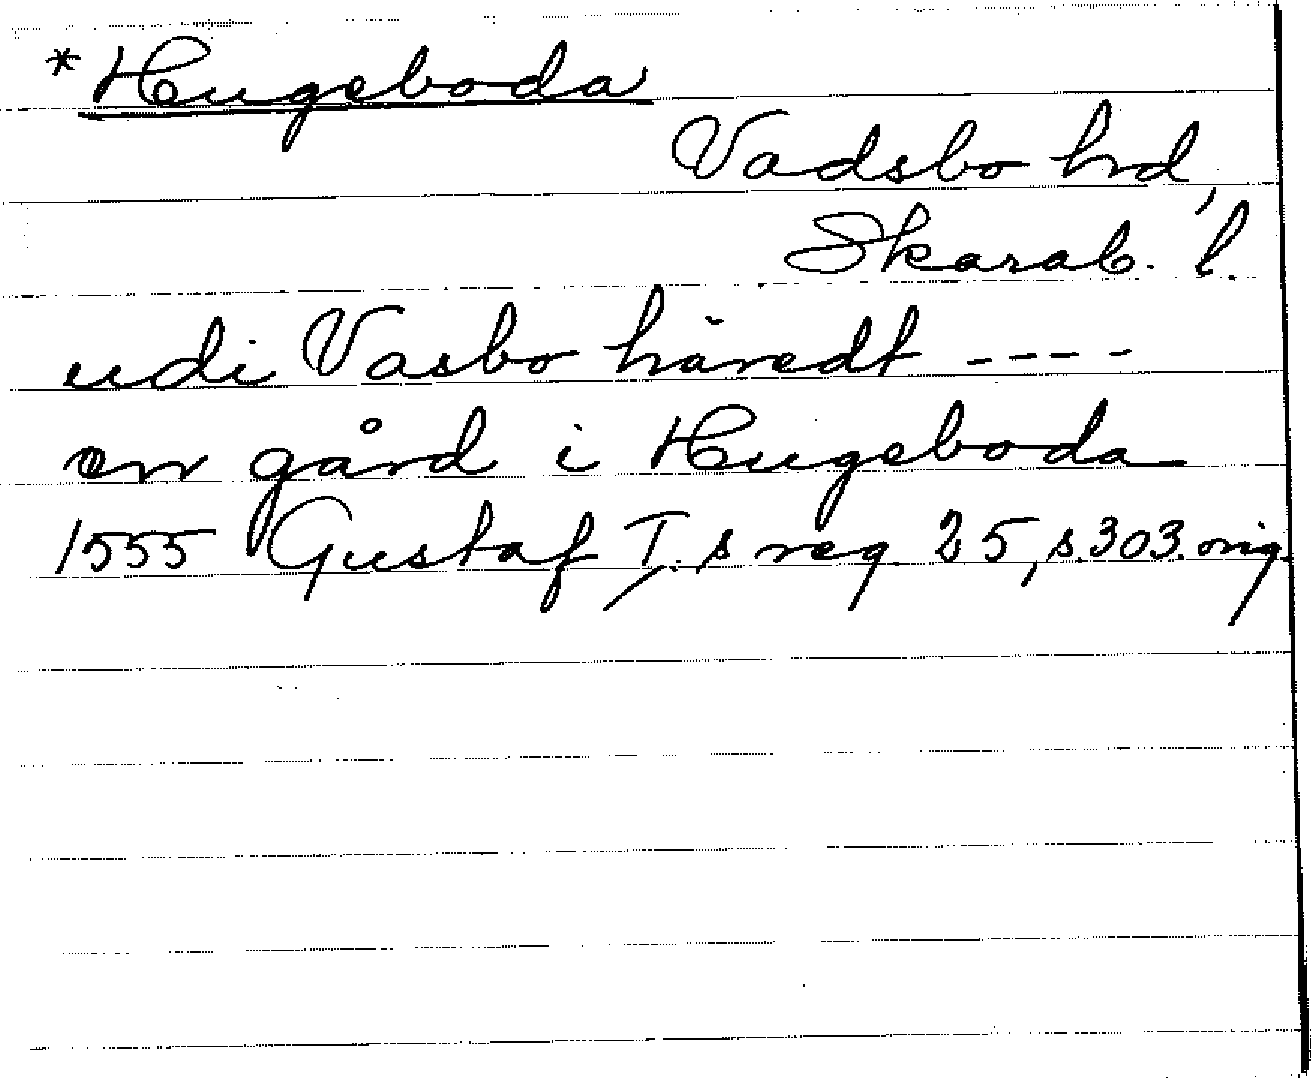 *Hugeboda
Vadsbo hrd,
Skarab. l.
udi Vasbo häredt ----
en gård i Hugeboda
1555 Gustaf I:s reg. 25, s. 303. orig.